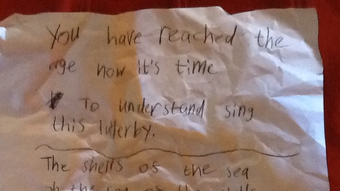 You have reached the
age now it's time
To understand sing
this lullerby.
The shells of the sea